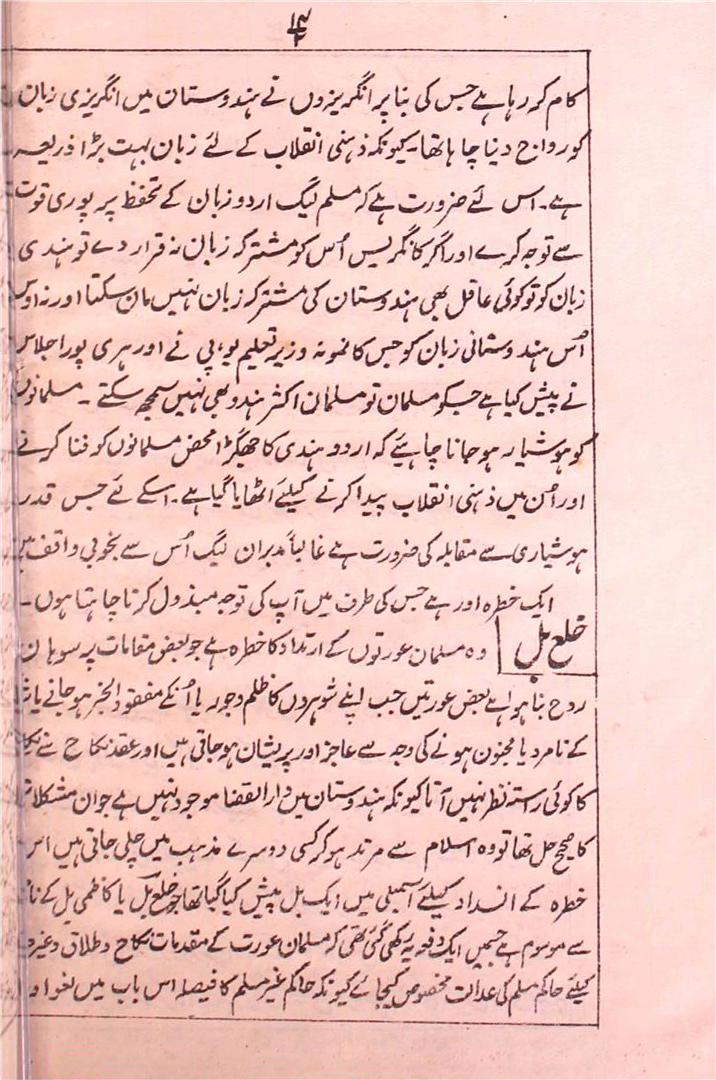 ۱۴
کام کر رہا ہے جس کی بنا پر انگریزوں نے ہندوستان میں انگریزی زبان
کو رواج دینا چاہا تھا۔ کیونکہ ذہنی انقلاب کے لئے زبان بہت بڑا ذریعہ
ہے۔ اس لئے ضرورت ہے کہ مسلم لیگ اردو زبان کے تحفظ پر پوری قوت
سے توجہ کرے اور اگر کانگریس اُس کو مشترکہ زبان نہ قرار دے تو ہندی
زبان کو تو کوئی عاقل بھی ہندوستان کی مشترکہ زبان نہیں مان سکتا اور نہ اوس
اُس ہندوستانی زبان کو جس کا نمونہ وزیر تعلیم یو، پی نے اور ہری پورا جلاس
نے پیش کیا ہے جسکو مسلمان تو مسلمان اکثر ہندو بھی نہیں سمجھ سکتے۔ مسلمانوں
کو ہوشیار ہو جانا چاہیئے کہ اردو ہندی کا جھگڑا محض مسلمانوں کو فنا کرنے
اور اُن میں ذہنی انقلاب پیدا کرنے کیلئے اٹھایا گیا ہے۔ اسکے لئے جس قدر
ہوشیاری سے مقابلہ کی ضرورت ہے غالباً مدبران لیگ اُس سے بخوبی واقف ہیں
ایک خطرہ اور ہے جس کی طرف میں آپ کی توجہ مبذول کرنا چاہتا ہوں۔
خلع بل
وہ مسلمان عورتوں کے ارتداد کا خطرہ ہے جو بعض مقامات پر سوہان
روح بنا ہوا ہے بعض عورتیں جب اپنے شوہروں کا ظلم و جور یا اُنکے مفقود الخبر ہو جانے یا
کے نامرد یا مجنون ہونے کی وجہ سے عاجز اور پریشان ہو جاتی ہیں اور عقد نکاح سے
کا کوئی راستہ نظر نہیں آتا کیونکہ ہندوستان میں دار القضا موجود نہیں ہے جو ان مشکلات
کا صحیح حل تھا تو وہ اسلام سے مرتد ہو کر کسی دوسرے مذہب میں چلی جاتی ہیں اس
خطرہ کے انسداد کیلئے اسمبلی میں ایک بل پیش کیا گیا تھا جو خلع بل یا کاظمی بل کے نام
سے موسوم ہے جسمیں ایک دفعہ یہ رکھی گئی تھی کہ مسلمان عورت کے مقدمات نکاح و طلاق وغیرہ
کیلئے حاکم مسلم کی عدالت مخصوص کیجائے کیونکہ حاکم غیر مسلم کا فیصلہ اس باب میں لغو اور